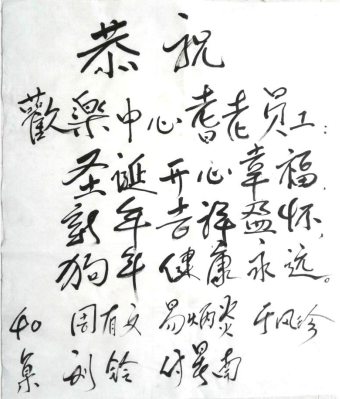 恭祝
歡樂中心耆老员工:
圣诞开心幸福,
新年吉祥盈怀,
狗年健康永远。
和 周有文 易炳炎 于风珍
泉 刘铨 付景南